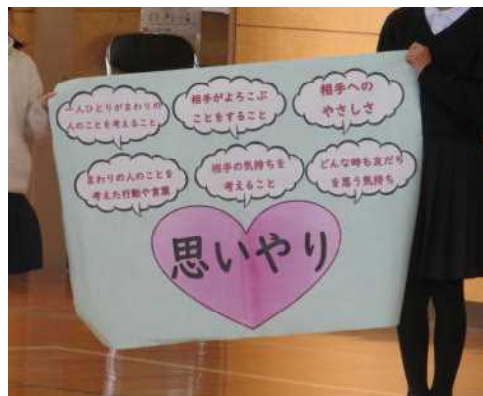 一人ひとりがまわりの
人のことを考えること
相手がよろこぶ
ことをすること
相手への
やさしさ
まわりの人のことを
考えた行動や言葉
相手の気持ちを
考えること
どんな時も友だち
を思う気持ち
思いやり